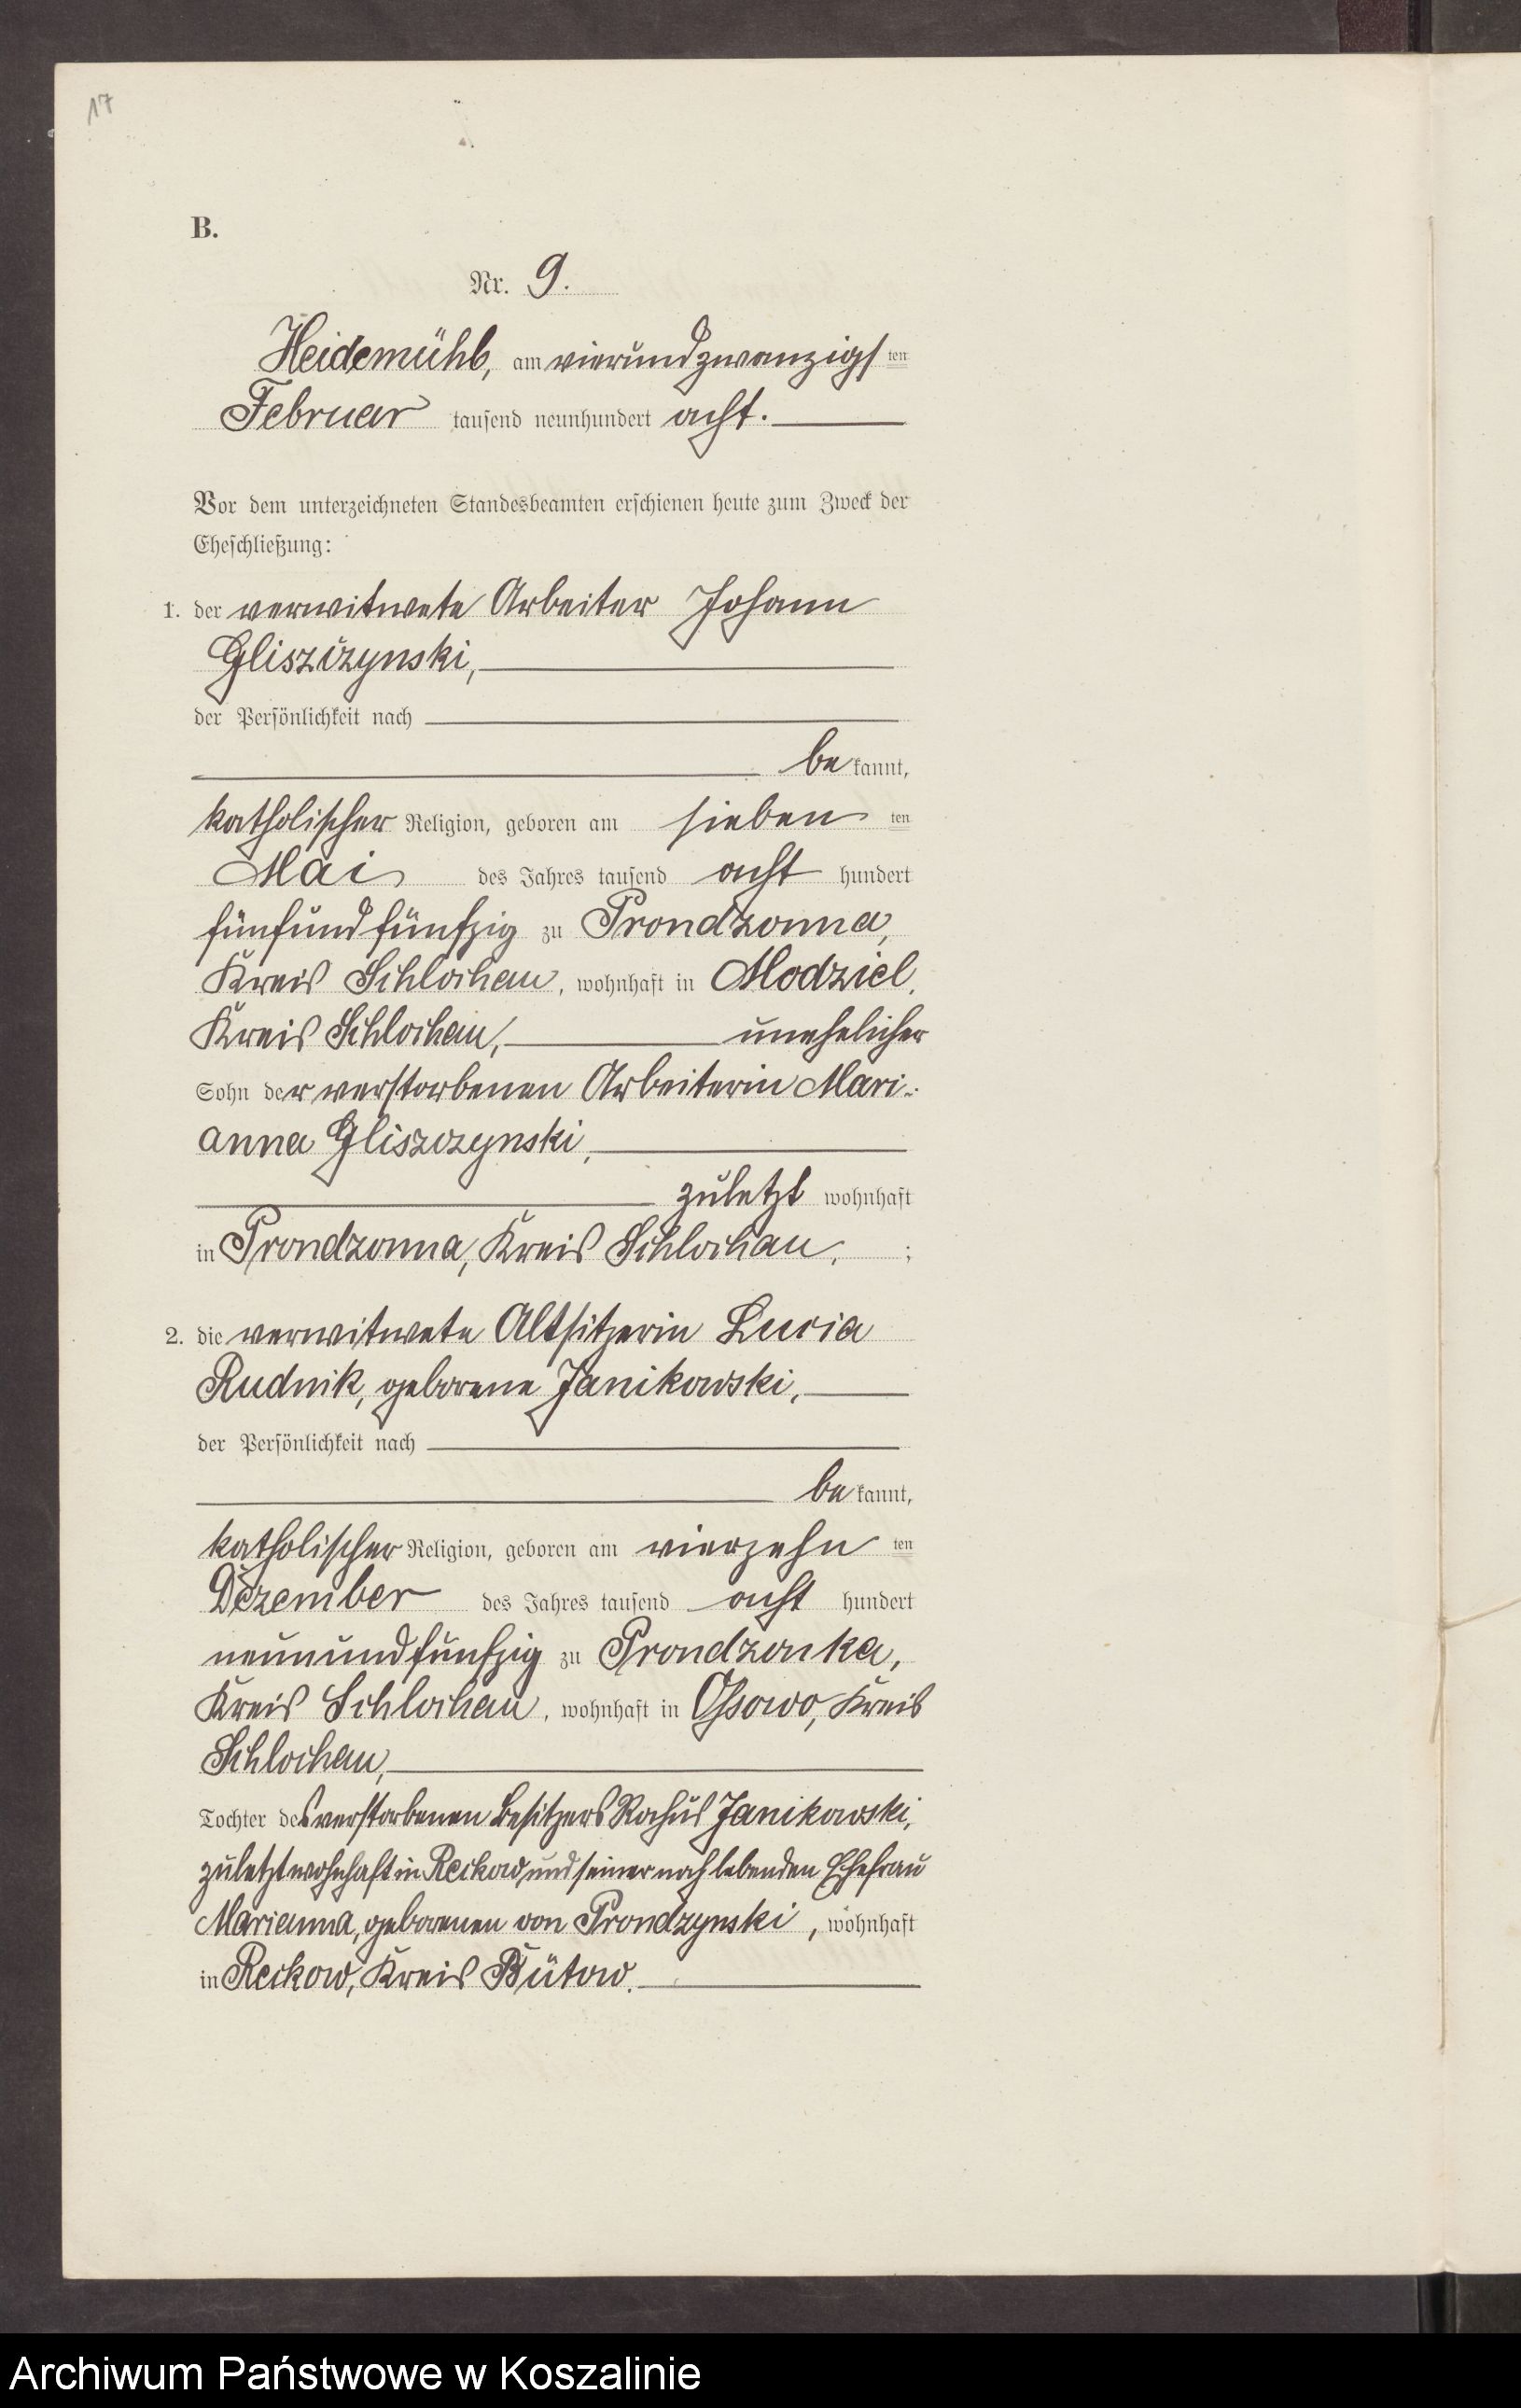 17
B.
Nr. 9.
Heidemühl, am vierundzwanzigsten
Februar tausend neunhundert acht.
Vor dem unterzeichneten Standesbeamten erschienen heute zum Zweck der
Eheschließung:
1. der verwitwete Arbeiter Johann
Gliszczynski,
der Persönlichkeit nach
bekannt,
katholischer Religion, geboren am siebenten
Mai des Jahres tausend acht hundert
fünfundfünfzig zu Prondzonna,
Kreis Schlochau, wohnhaft in Modziel,
Kreis Schlochau, unehelicher
Sohn der verstorbenen Arbeiterin Mari-
anna Gliszczynski,
zuletzt wohnhaft
in Prondzonna, Kreis Schlochau, ;
2. die verwitwete Altsitzerin Lucia
Rudnik, geborene Janikowski,
der Persönlichkeit nach
bekannt,
katholischer Religion, geboren am vierzehnten
Dezember des Jahres tausend acht hundert
neunundfünfzig zu Prondzonka,
Kreis Schlochau, wohnhaft in Ossowo, Kreis
Schlochau,
Tochter des verstorbenen Besitzers Rochus Janikowski,
zuletzt wohnhaft in Reckow und seiner noch lebenden Ehefrau
Marianna, geborenen von Prondzynski, wohnhaft
in Reckow, Kreis Bütow.
Archiwum Państwowe w Koszalinie